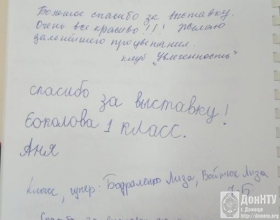 Большое спасибо за выставку.
Очень все красиво!!! Желаю
дальнейшего процветания.
клуб "Увлеченность"
спасибо за выставку!
Соколова 1 класс.
Аня
Класс, супер. Бодраленко Лиза, Лиза
ДОННТУ
г. Донецк